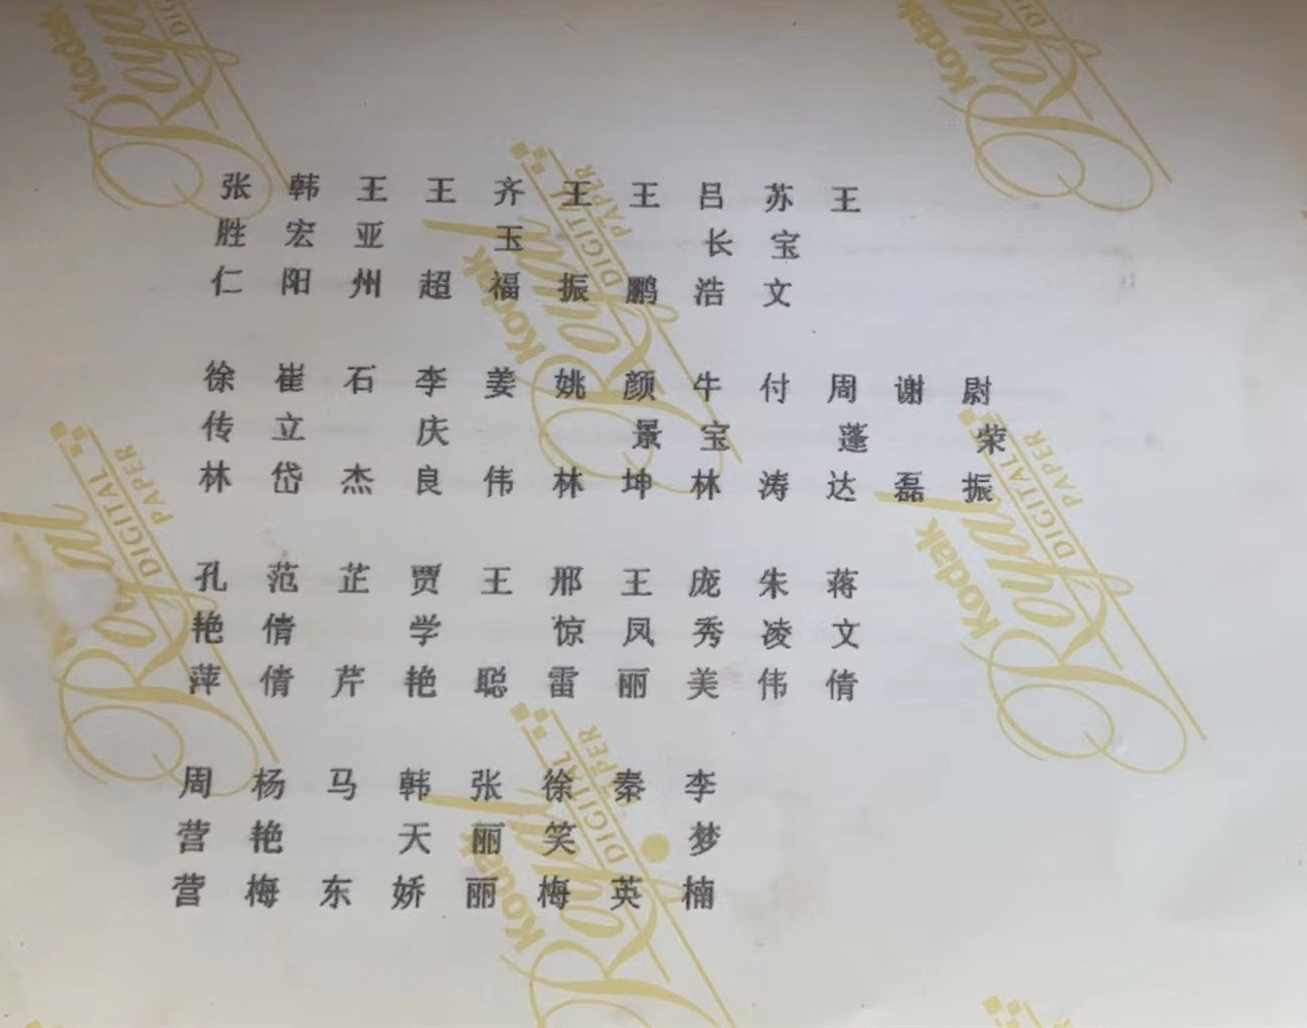 张 韩 王 王 齐 王 王 吕 苏 王
胜 宏 亚 玉 长 宝
仁 阳 州 超 福 振 鹏 浩 文
徐 崔 石 李 姜 姚 颜 牛 付 周 谢 尉
传 立 庆 景 宝 蓬 荣
林 岱 杰 良 伟 林 坤 林 涛 达 磊 振
孔 范 芷 贾 王 邢 王 庞 朱 蒋
艳 倩 学 惊 凤 秀 凌 文
萍 倩 芹 艳 聪 雷 丽 美 伟 倩
周 杨 马 韩 张 徐 秦 李
营 艳 天 丽 笑 梦
营 梅 东 娇 丽 梅 英 楠
Kodak
Royal
DIGITAL
PAPER
Kodak
Royal
DIGITAL
Kodak
Royal
DIGITAL
PAPER
Royal
DIGITAL
PAPER
Kodak
Royal
DIGITAL
PAPER
Kodak
Royal
DIGITAL
PAPER